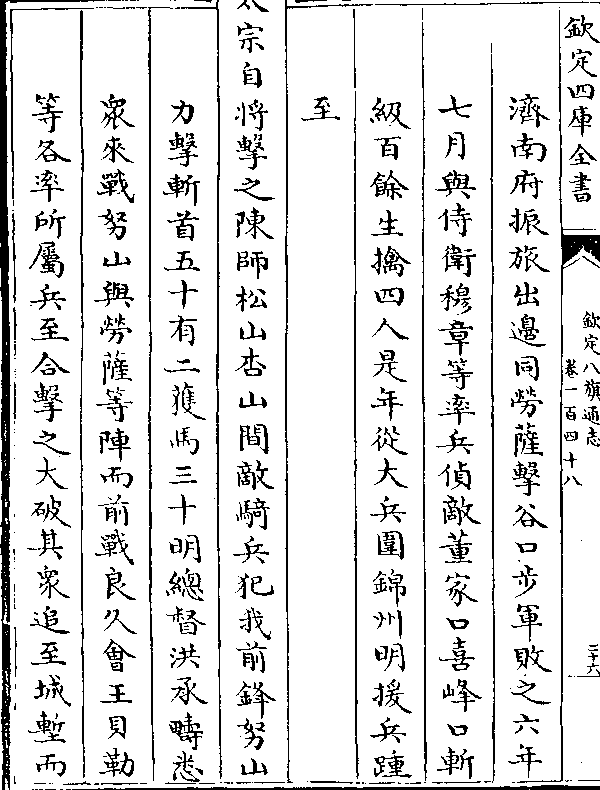 欽定四庫全書
欽定八旗通志
卷一百四十八
三十六
濟南府振旅出邊同勞薩擊谷口步軍敗之六年
七月與侍衛穆章等率兵偵敵董家口喜峰口斬
級百餘生擒四人是年從大兵圍錦州明援兵踵
至
太宗自將擊之陳師松山杏山間敵騎兵犯我前鋒努山
力擊斬首五十有二獲馬三十明總督洪承疇悉
衆來戰努山與勞薩等陣而前戰良久會王貝勒
等各率所屬兵至合擊之大破其衆追至城塹而